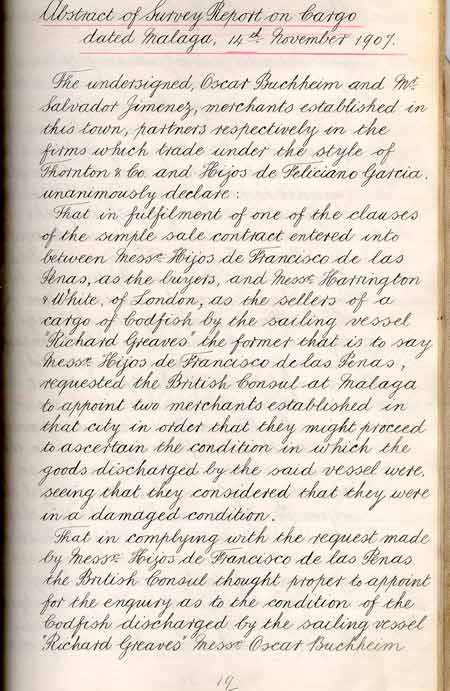 Abstract of Survey Report on Cargo
dated Malaga, 14th November 1907.
The undersigned, Oscar Buchheim and Mr.
Salvador Jimenez, merchants established in
this town, partners respectively in the
firms which trade under the style of
Thornton & Co. and Hijos de Feliciano Garcia.
unanimously declare:
That in fulfilment of one of the clauses
of the simple sale contract entered into
between Messrs. Hijos de Francisco de las
Penas, as the buyers, and Messrs. Harrington
& White, of London, as the sellers of a
cargo of Codfish by the sailing vessel
"Richard Greaves" the former that is to say
Messrs. Hijos de Francisco de las Penas,
requested the British Consul at Malaga
to appoint two merchants established in
that city in order that they might proceed
to ascertain the condition in which the
goods discharged by the said vessel were,
seeing that they considered that they were
in a damaged condition.
That in complying with the request made
by Messrs. Hijos de Francisco de las Penas
the British Consul thought proper to appoint
for the enquiry as to the condition of the
Codfish discharged by the sailing vessel
"Richard Greaves" Messrs. Oscar Buchheim